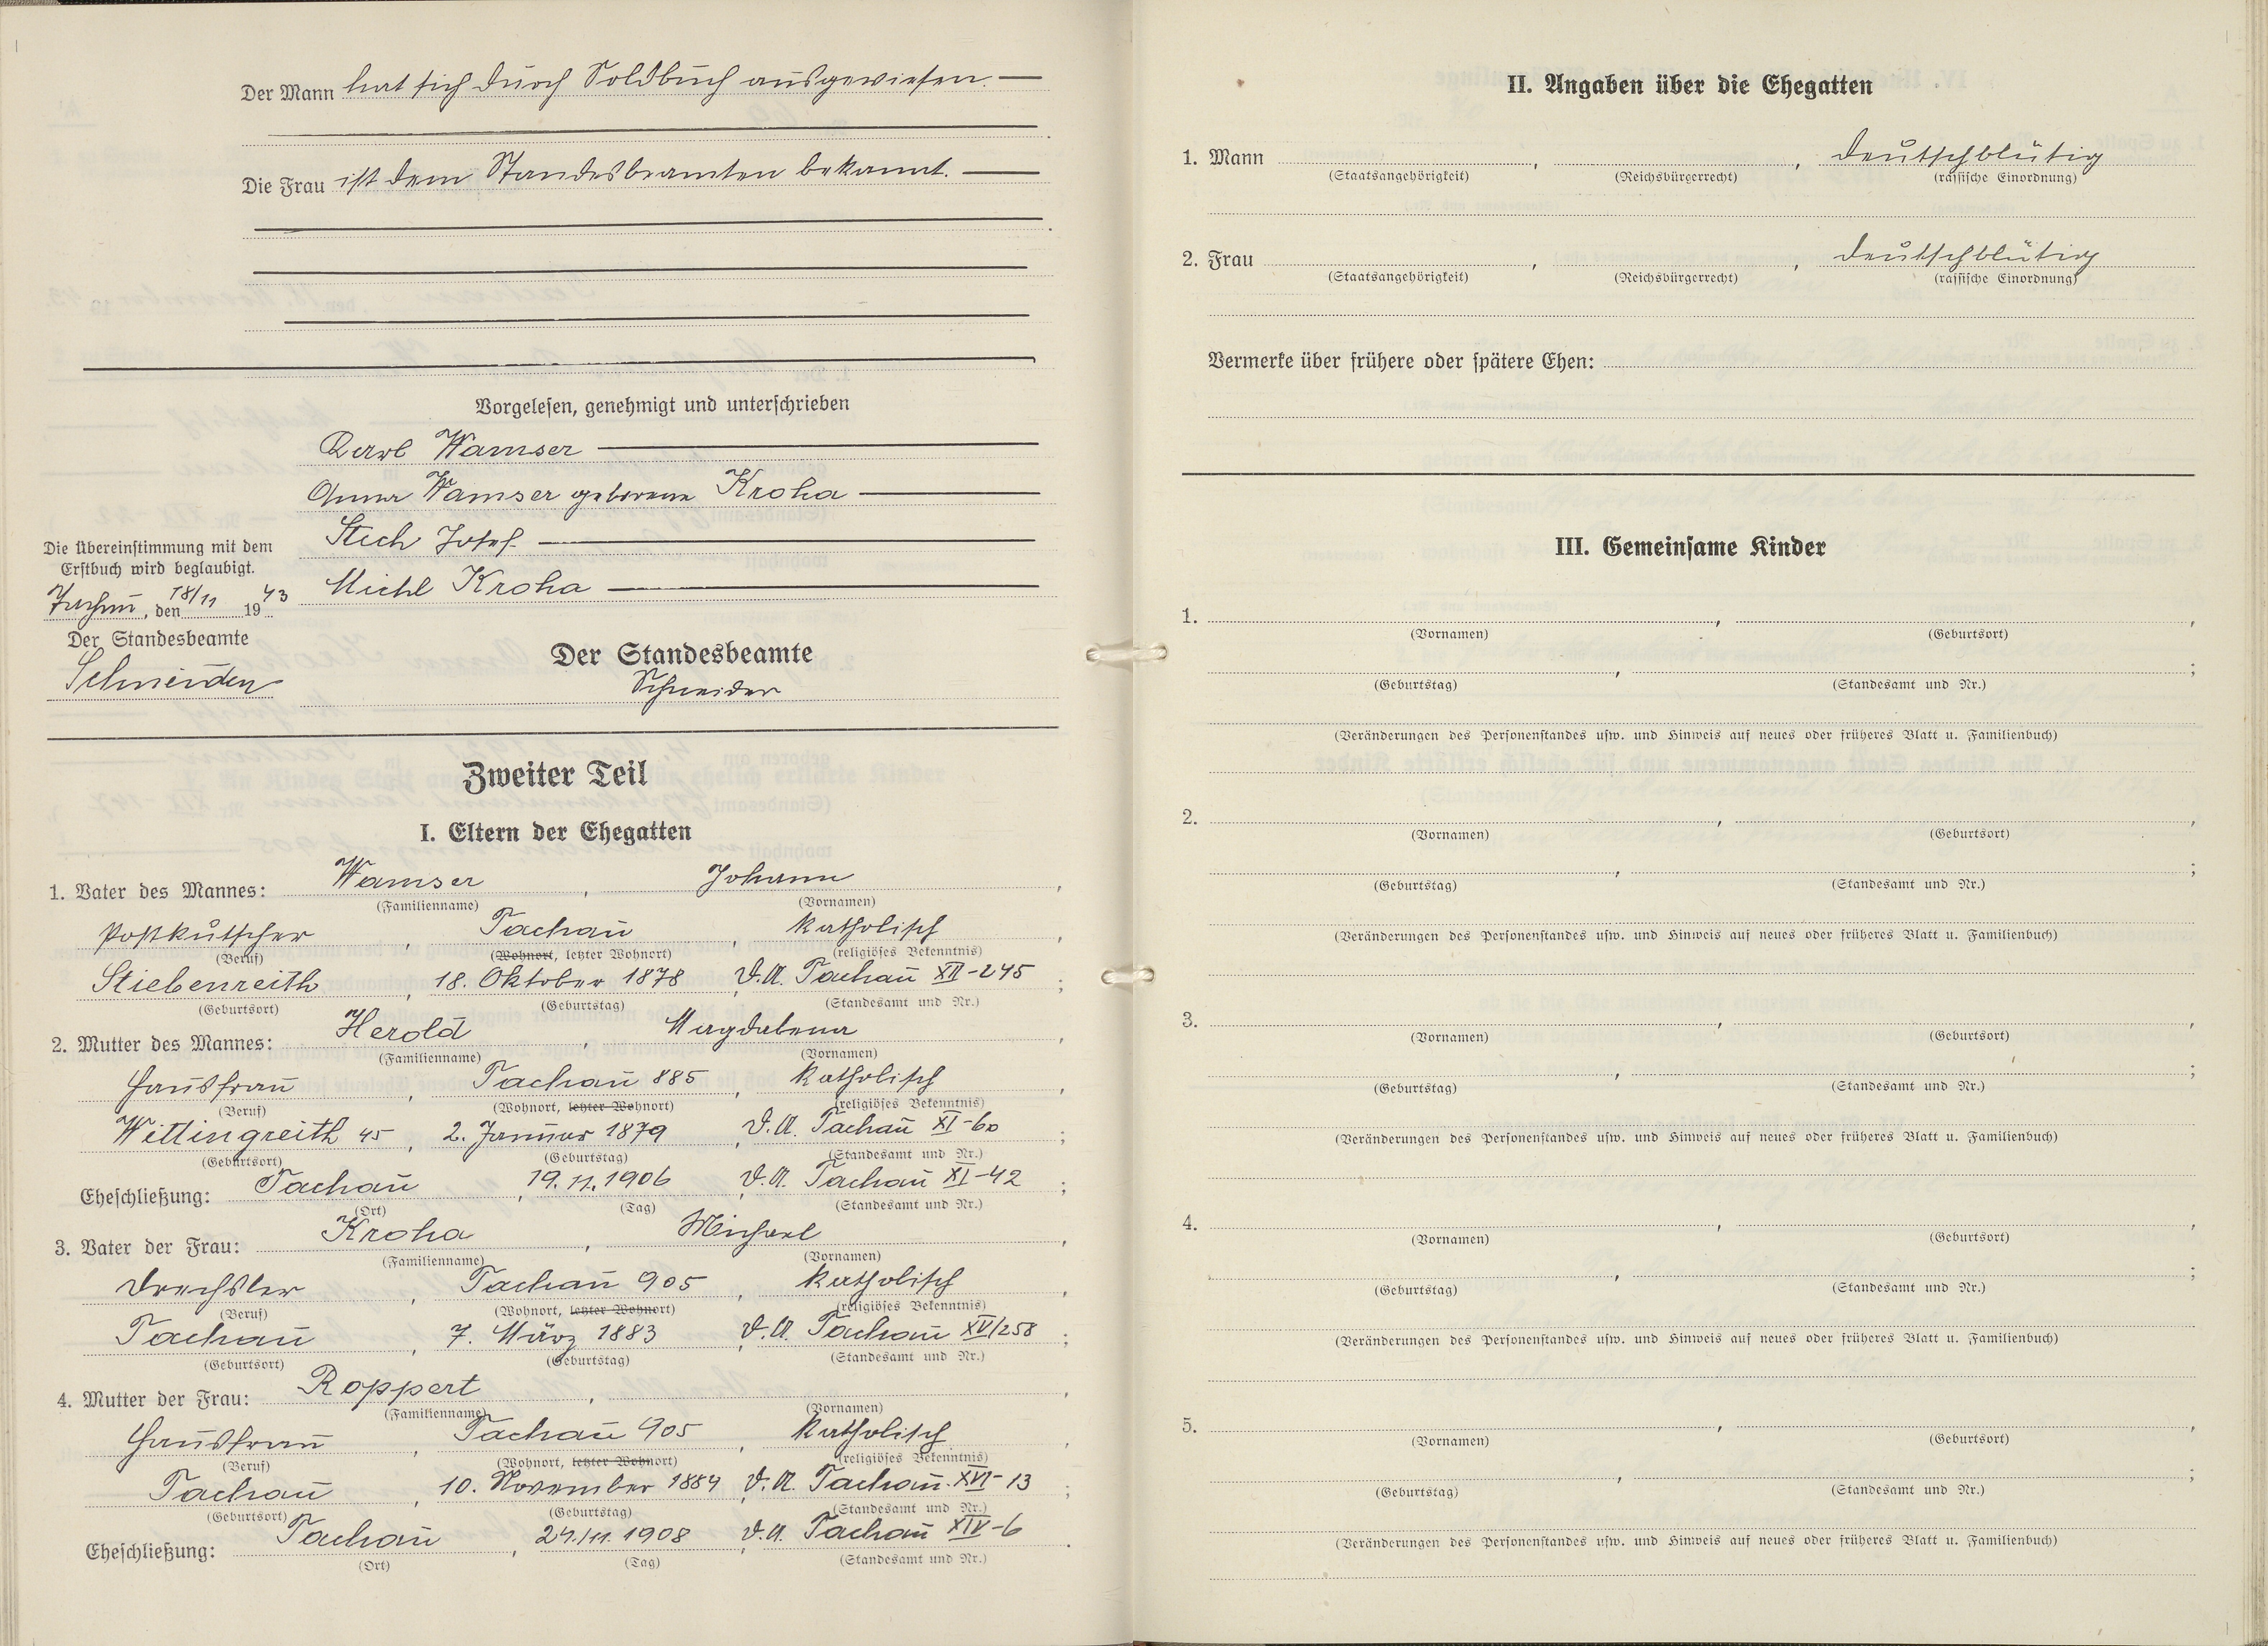 Der Mann hat sich durch Soldbuch ausgewiesen. —
Die Frau ist dem Standesbeamten bekannt. —
Vorgelesen, genehmigt und unterschrieben
Karl Wamser
Anna Wamser geborene Kroha
Stich Josef
Michl Kroha
Die Übereinstimmung mit dem
Erstbuch wird beglaubigt.
Tachau, den 18/11 1943
Der Standesbeamte
Schneider
Der Standesbeamte
Schneider
Zweiter Teil
I. Eltern der Ehegatten
1. Vater des Mannes: Wamser, Johann,
(Familienname) (Vornamen)
Postkutscher, Tachau, katholisch,
(Beruf) (Wohnort, letzter Wohnort) (religiöses Bekenntnis)
Stiebenreith, 18. Oktober 1878, V.A. Tachau XII-245;
(Geburtsort) (Geburtstag) (Standesamt und Nr.)
2. Mutter des Mannes: Herold, Magdalena,
(Familienname) (Vornamen)
Hausfrau, Tachau 885, katholisch,
(Beruf) (Wohnort, letzter Wohnort) (religiöses Bekenntnis)
Wittingreith 45, 2. Januar 1879, V.A. Tachau XI-60;
(Geburtsort) (Geburtstag) (Standesamt und Nr.)
Eheschließung: Tachau, 19.11.1906, V.A. Tachau XI-42;
(Ort) (Tag) (Standesamt und Nr.)
3. Vater der Frau: Kroha, Michael,
(Familienname) (Vornamen)
Drechsler, Tachau 905, katholisch,
(Beruf) (Wohnort, letzter Wohnort) (religiöses Bekenntnis)
Tachau, 7. März 1883, V.A. Tachau XV/258;
(Geburtsort) (Geburtstag) (Standesamt und Nr.)
4. Mutter der Frau: Roppert, ,
(Familienname) (Vornamen)
Hausfrau, Tachau 905, katholisch,
(Beruf) (Wohnort, letzter Wohnort) (religiöses Bekenntnis)
Tachau, 10. November 1884, V.A. Tachau XVI-13;
(Geburtsort) (Geburtstag) (Standesamt und Nr.)
Eheschließung: Tachau, 24./11.1908, V.A. Tachau XIV-6.
(Ort) (Tag) (Standesamt und Nr.)
II. Angaben über die Ehegatten
1. Mann , , deutschblütig
(Staatsangehörigkeit) (Reichsbürgerrecht) (rassische Einordnung)
2. Frau , , deutschblütig
(Staatsangehörigkeit) (Reichsbürgerrecht) (rassische Einordnung)
Vermerke über frühere oder spätere Ehen:
III. Gemeinsame Kinder
1. , ,
(Vornamen) (Geburtsort)
, ;
(Geburtstag) (Standesamt und Nr.)
(Veränderungen des Personenstandes usw. und Hinweis auf neues oder früheres Blatt u. Familienbuch)
2. , ,
(Vornamen) (Geburtsort)
, ;
(Geburtstag) (Standesamt und Nr.)
(Veränderungen des Personenstandes usw. und Hinweis auf neues oder früheres Blatt u. Familienbuch)
3. , ,
(Vornamen) (Geburtsort)
, ;
(Geburtstag) (Standesamt und Nr.)
(Veränderungen des Personenstandes usw. und Hinweis auf neues oder früheres Blatt u. Familienbuch)
4. , ,
(Vornamen) (Geburtsort)
, ;
(Geburtstag) (Standesamt und Nr.)
(Veränderungen des Personenstandes usw. und Hinweis auf neues oder früheres Blatt u. Familienbuch)
5. , ,
(Vornamen) (Geburtsort)
, ;
(Geburtstag) (Standesamt und Nr.)
(Veränderungen des Personenstandes usw. und Hinweis auf neues oder früheres Blatt u. Familienbuch)